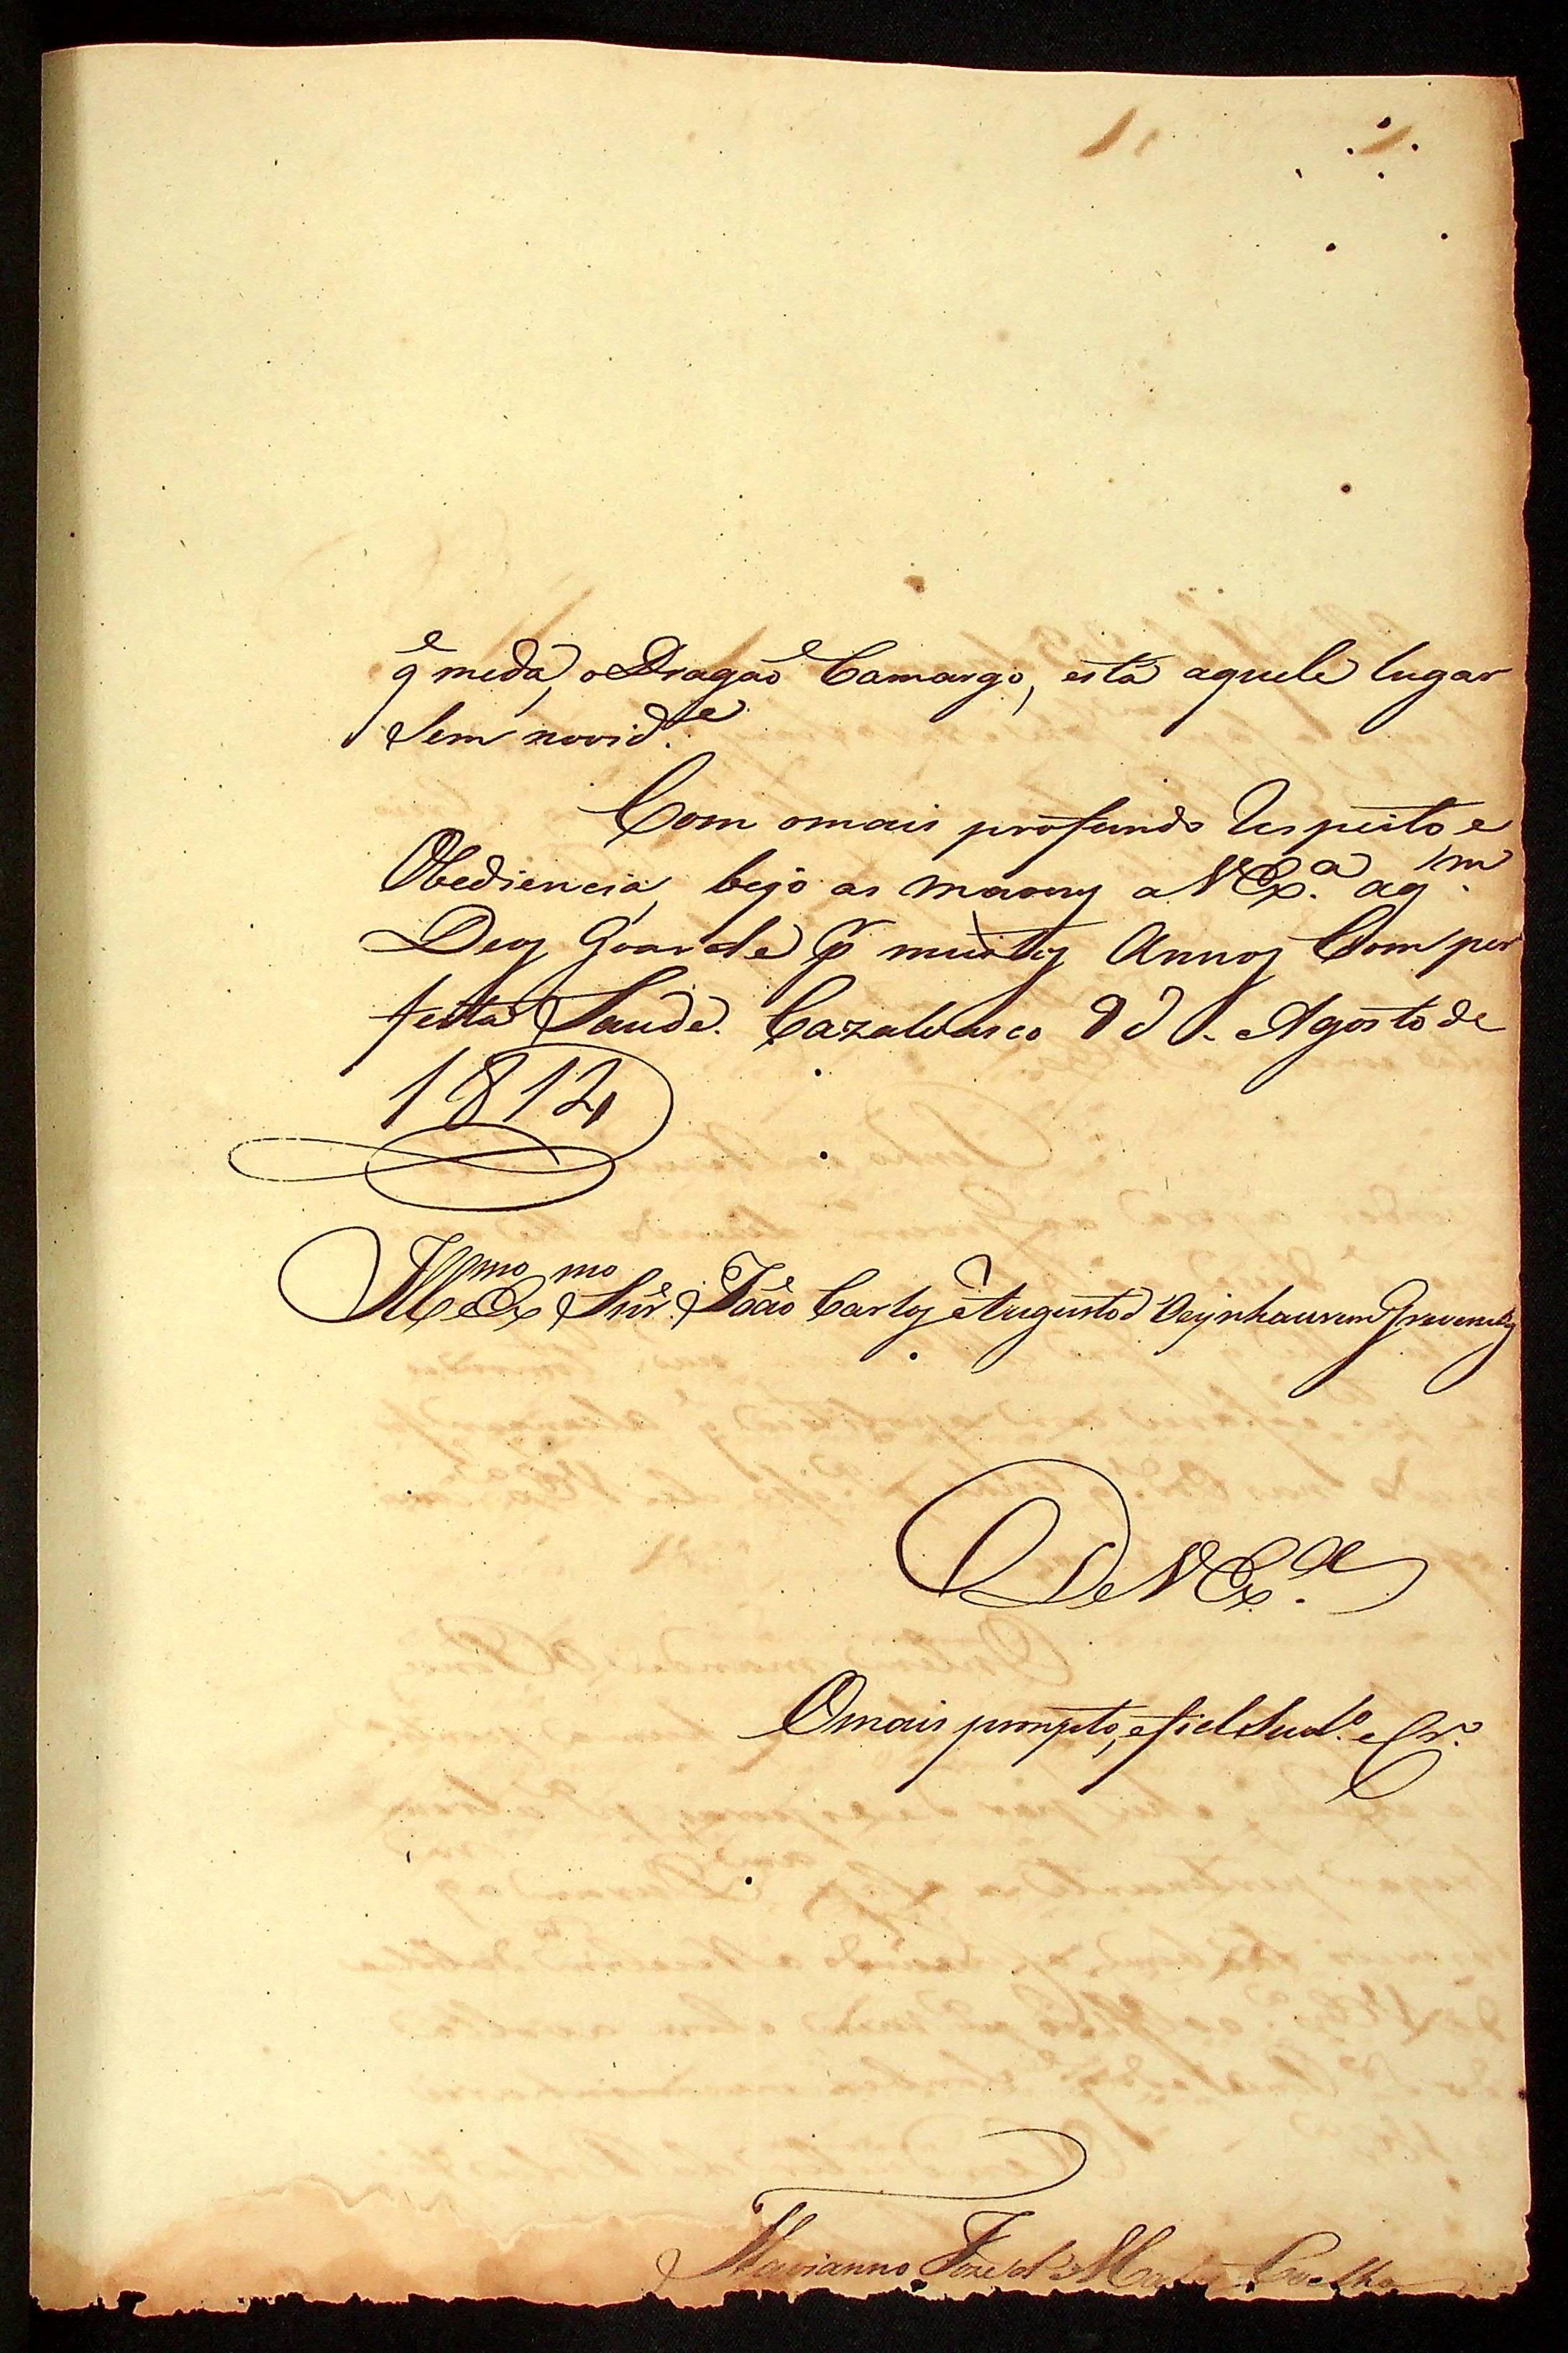 q̃ me dá, o Dragaõ Camargo, está aquele lugar
Sem novid.e
Com omais profundo Respeito e
Obediencia, bejo as maons a V Ex.a aq.m
Deos Goarde p.r muitos Annos Com per
feita Saude. Cazalvasco d Agosto de
1812
Ill.mo e Ex.mo Snr. João Carlos Augusto d'Oeynhausen Grevenbg
De V Ex.a
Omais prompto, e fiel Sud.o e Cr.o
Marianno Joze de Mattos Coelho